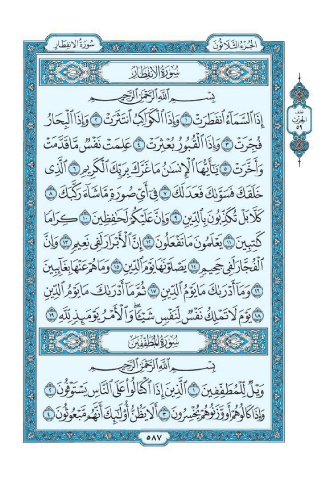 سُورَةُ الانفِطَارِ
الجُزْءُ الثَّلَاثُونَ
سُورَةُ الانفِطَارِ
بِسْمِ اللَّهِ الرَّحْمَٰنِ الرَّحِيمِ
إِذَا السَّمَاءُ انفَطَرَتْ ١ وَإِذَا الْكَوَاكِبُ انتَثَرَتْ ٢ وَإِذَا الْبِحَارُ
فُجِّرَتْ ٣ وَإِذَا الْقُبُورُ بُعْثِرَتْ ٤ عَلِمَتْ نَفْسٌ مَّا قَدَّمَتْ
وَأَخَّرَتْ ٥ يَا أَيُّهَا الْإِنسَانُ مَا غَرَّكَ بِرَبِّكَ الْكَرِيمِ ٦ الَّذِي
خَلَقَكَ فَسَوَّاكَ فَعَدَلَكَ ٧ فِي أَيِّ صُورَةٍ مَّا شَاءَ رَكَّبَكَ ٨
كَلَّا بَلْ تُكَذِّبُونَ بِالدِّينِ ٩ وَإِنَّ عَلَيْكُمْ لَحَافِظِينَ ١٠ كِرَامًا
كَاتِبِينَ ١١ يَعْلَمُونَ مَا تَفْعَلُونَ ١٢ إِنَّ الْأَبْرَارَ لَفِي نَعِيمٍ ١٣ وَإِنَّ
الْفُجَّارَ لَفِي جَحِيمٍ ١٤ يَصْلَوْنَهَا يَوْمَ الدِّينِ ١٥ وَمَا هُمْ عَنْهَا بِغَائِبِينَ
١٦ وَمَا أَدْرَاكَ مَا يَوْمُ الدِّينِ ١٧ ثُمَّ مَا أَدْرَاكَ مَا يَوْمُ الدِّينِ
١٨ يَوْمَ لَا تَمْلِكُ نَفْسٌ لِّنَفْسٍ شَيْئًا وَالْأَمْرُ يَوْمَئِذٍ لِّلَّهِ ١٩
سُورَةُ المُطَفِّفِينَ
بِسْمِ اللَّهِ الرَّحْمَٰنِ الرَّحِيمِ
وَيْلٌ لِّلْمُطَفِّفِينَ ١ الَّذِينَ إِذَا اكْتَالُوا عَلَى النَّاسِ يَسْتَوْفُونَ ٢
وَإِذَا كَالُوهُمْ أَو وَّزَنُوهُمْ يُخْسِرُونَ ٣ أَلَا يَظُنُّ أُولَٰئِكَ أَنَّهُم مَّبْعُوثُونَ ٤
٥٨٧
الحِزْب
٥٩